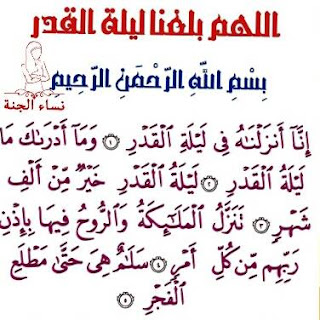 اللهم بلغنا ليلة القدر
بِسْمِ اللَّهِ الرَّحْمَنِ الرَّحِيمِ
نساء الجنة
إِنَّآ أَنزَلْنَٰهُ فِى لَيْلَةِ ٱلْقَدْرِ ١ وَمَآ أَدْرَىٰكَ مَا
لَيْلَةُ ٱلْقَدْرِ ٢ لَيْلَةُ ٱلْقَدْرِ خَيْرٌ مِّنْ أَلْفِ
شَهْرٍ ٣ تَنَزَّلُ ٱلْمَلَٰٓئِكَةُ وَٱلرُّوحُ فِيهَا بِإِذْنِ
رَبِّهِم مِّن كُلِّ أَمْرٍ ٤ سَلَٰمٌ هِىَ حَتَّىٰ مَطْلَعِ
ٱلْفَجْرِ ٥